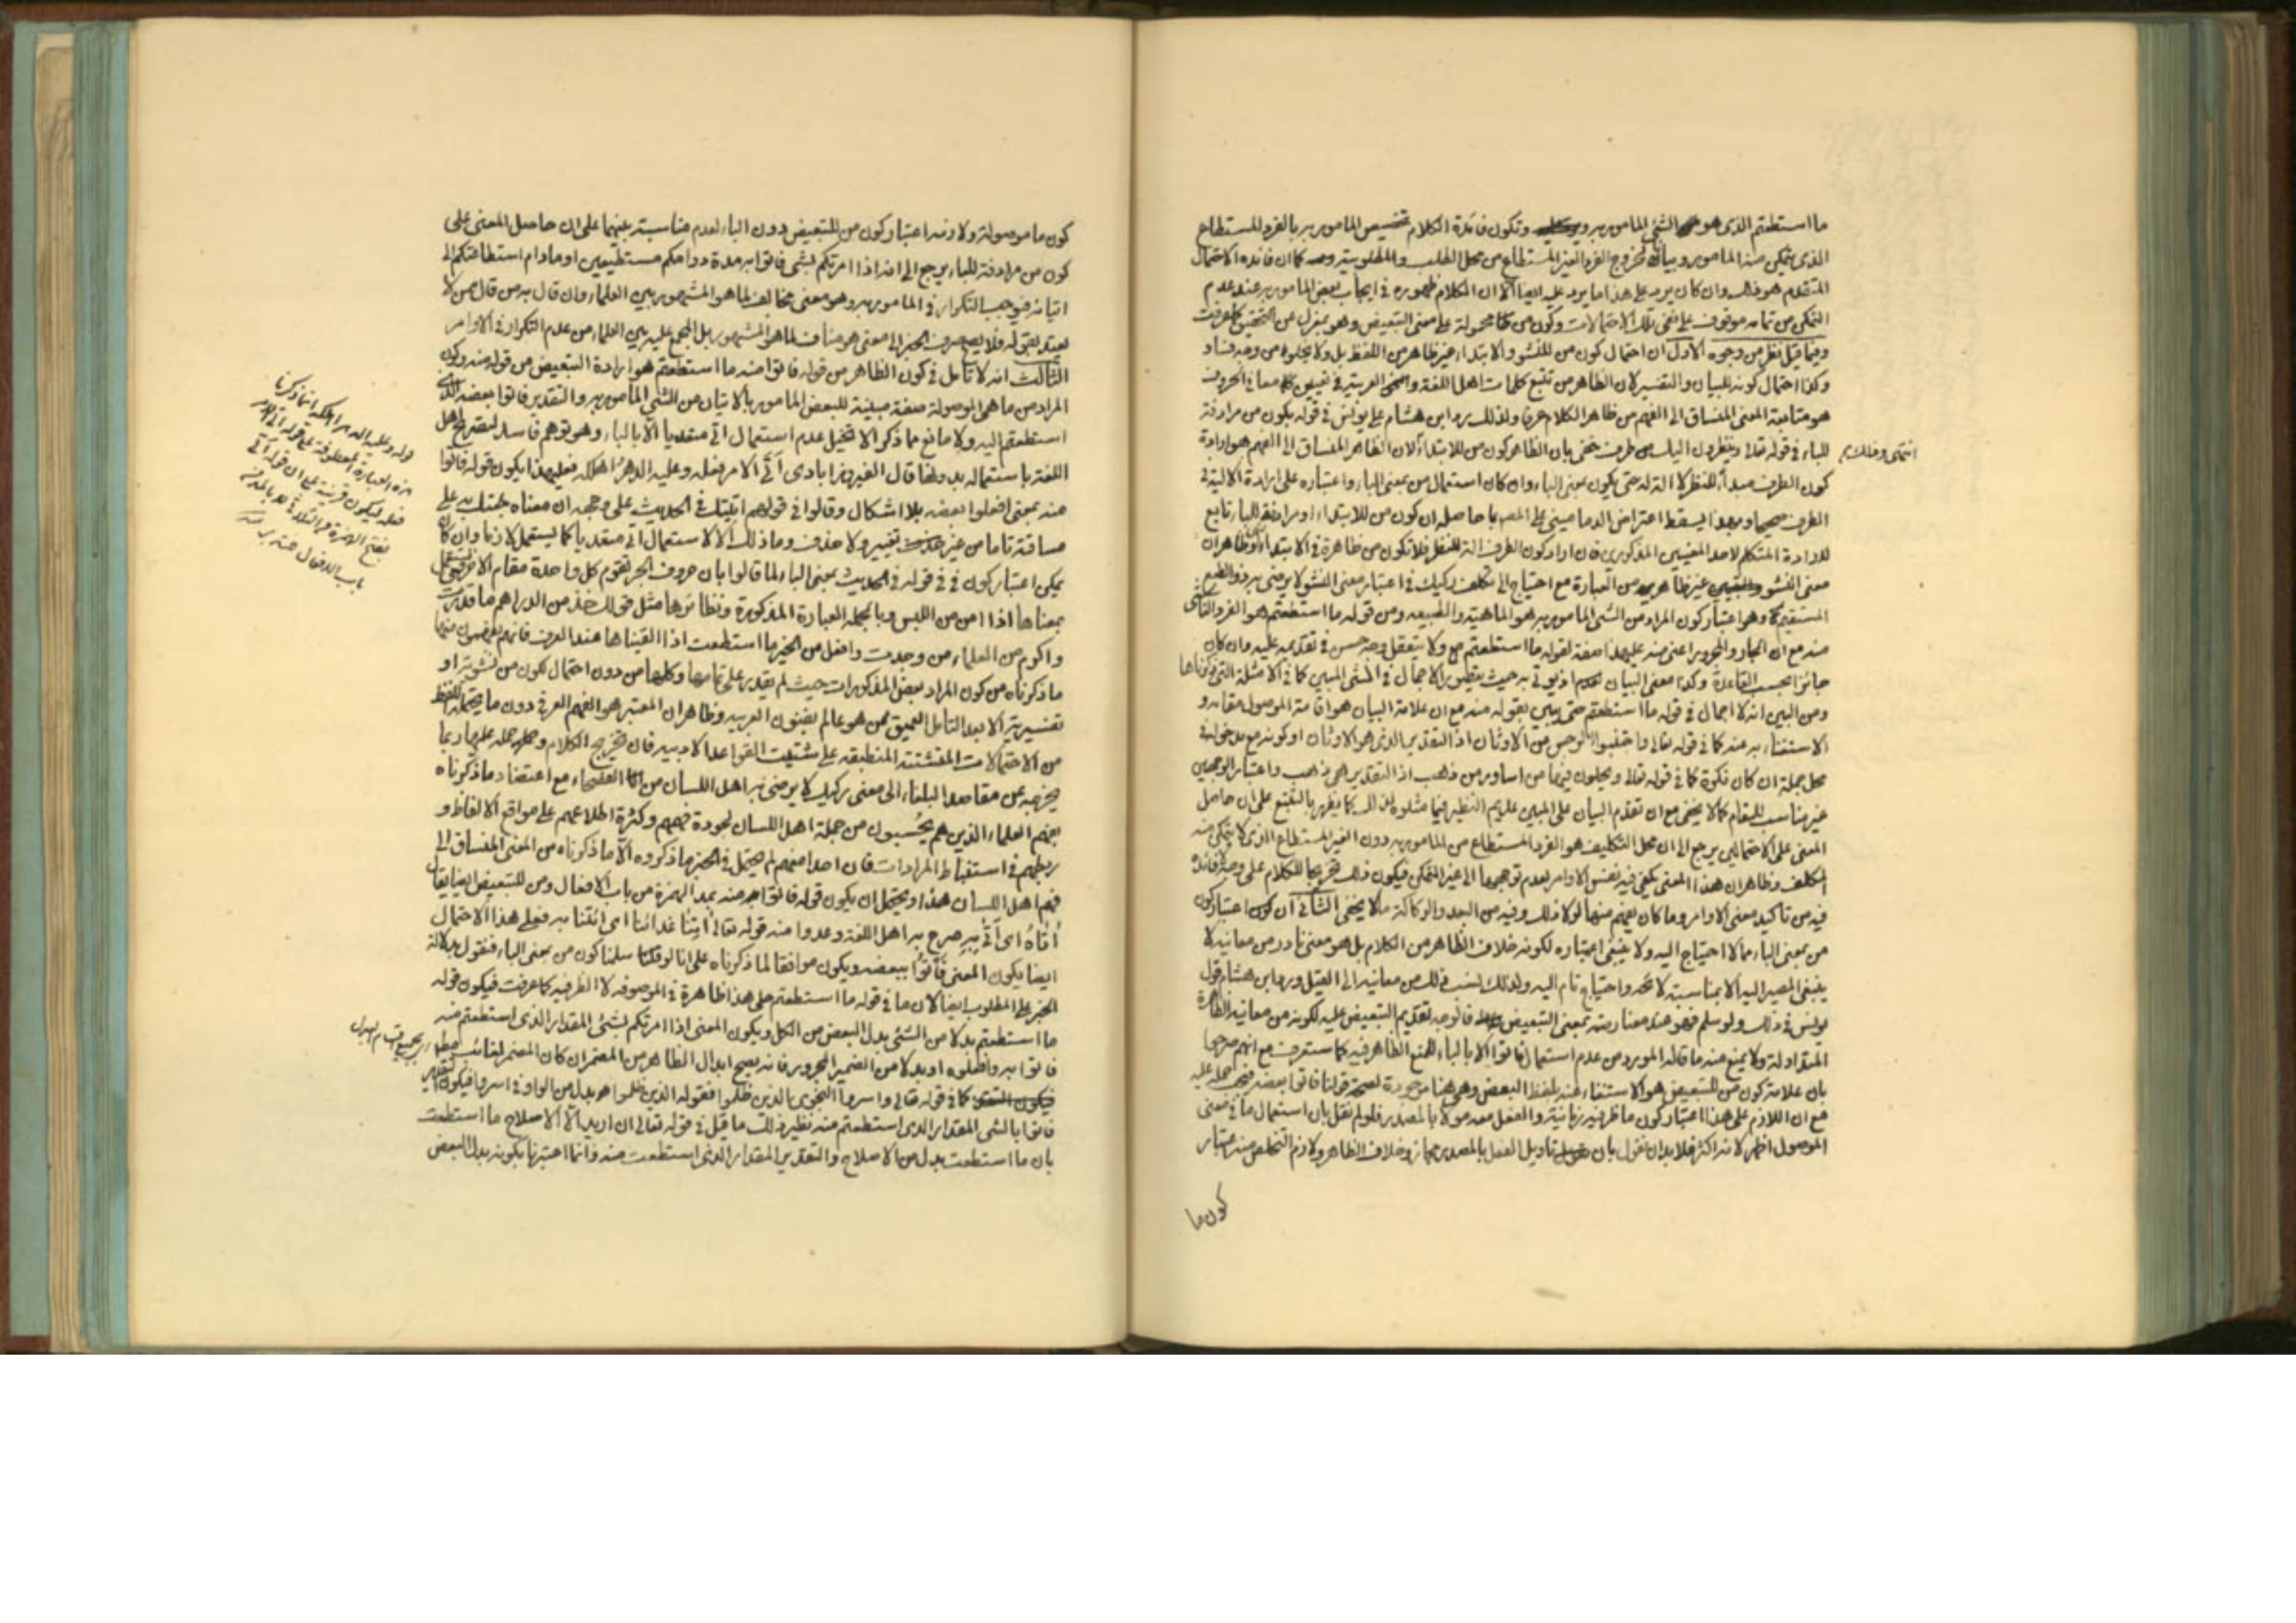 ما استطعتم الذى هو الشئ المامور به وتكون فائدة الكلام تخصيص المامور به بالفرد المستطاع
الذى يتمكن منه المامور وبيانه لخروج الفرد الغير المستطاع من محل الطلب والمطلوبية كما ان فائدة الاحتمال
المتقدم هو ذلك وان كان يرد على هذا ما يرد عليه ايضا الا ان الكلام ظهوره فى ايجاب بعض المامور به عند عدم
التمكن من تمامه موقوف على نفى تلك الاحتمالات وكون من محمولة على معنى التبعيض وهو بمعزل عن التحقيق كما عرفت
وفيما قيل نظر من وجوه الاول ان احتمال كون من للنشو والابتداء غير ظاهر من اللفظ بل ولا يخلوه من وجه فساد
وكذا احتمال كونه للبيان والتفسير لان الظاهر من تتبع كلمات اهل اللغة العربية فى تعيين معانى الحروف
هو متابعة المعنى المنساق الى الفهم من ظاهر الكلام عرفا ولذلك يرد ابن هشام على يونس فى قوله بكون من مرادفة
للباء فى قوله تعالى ينظرون اليك من طرف خفى بان الظاهر كون من للابتداء لان الظاهر المنساق الى الفهم هو ارادة
كون الطرف مبدأ للنظر لا آلة له حتى يكون بمعنى الباء وان كان استعمال من بمعنى الباء واعتباره على ارادة الآلية فى
الطرف صحيحا وبهذا يسقط اعتراض الدمامينى على المص بما حاصله ان كون من للابتداء او مرادفة للباء تابع
لارادة المتكلم لاحد المعنيين المذكورين فان اراد كون الطرف آلة للنظر فلا تكون من ظاهرة فى الابتداء وظاهر ان
معنى النشو غير ظاهر من العبارة مع احتياج الى تكلف ركيك فى اعتبار معنى النشو لا يرضى به ذو الطبع
المستقيم وهو اعتبار كون المراد من الشئ المامور به هو الماهية والطبيعه ومن قوله ما استطعتم هو الفرد الناشى
منه مع ان الجار والمجرور اعنى منه على هذا صفة لقوله ما استطعتم ولا يتعقل وجه حسن فى تقديمه عليه وان كان
جائزا بحسب القاعدة وكذا معنى البيان اذ يوتى به حيث يتطور الاجمال فى الشئ المبين كما فى الامثلة التى ذكرناها
ومن البين انه لا اجمال فى قوله ما استطعتم حتى يبين بقوله منه مع ان علامة البيان هو اقامة الموصول مقامه و
الاستغناء به عنه كما فى قوله تعالى واجتنبوا الرجس من الاوثان اذ التقدير الذى هو الاوثان او كونه مع مدخوله فى
محل جملة ان كان نكرة كما فى قوله تعالى ويحلون فيها من اساور من ذهب اذ التقدير هى ذهب واعتبار الوجهين
غير مناسب للمقام كما لا يخفى مع ان تقدم البيان على المبين عديم النظير فيما مثلوه لذلك كما يظهر بالتتبع على ان حاصل
المعنى على الاحتمالين يرجع الى ان محل التكليف هو الفرد المستطاع من المامور به دون الغير المستطاع الذى لا يتمكن منه
المكلف وظاهر ان هذا المعنى يكفى فيه نفس الاوامر لعدم توجهها الى غير المتمكن فيكون ذلك تخريجا للكلام على وجه لا فائدة
فيه من تاكيد معنى الاوامر وما كان يفهم منها لولا ذلك وفيه من البعد والركاكة ما لا يخفى الثانى ان اعتبار كون
من بمعنى الباء مما لا احتياج اليه ولا ينبغى اعتباره لكونه خلاف الظاهر من الكلام بل هو معنى نادر من معانيه لا
ينبغى المصير اليه الا بمناسبة واحتياج تام اليه ولذلك نسب ذلك من معانيه الى القيل ورد ابن هشام قول
يونس فى ذلك ولو سلم فهو عند معارضته بمعنى التبعيض فالوجه تقديم التبعيض عليه لكونه من معانيه الظاهرة
المتداولة ولا يمنع منه ما قاله المورد من عدم استعمال فاتوا الا بالباء لمنع الظاهر فيه كما ستعرف مع انهم صرحوا
بان علامة كون من للتبعيض هو الاستغناء عنه بلفظ البعض وهى هنا موجودة لصحة قولنا فاتوا بعضه عليه
مع ان اللازم على هذا اعتبار كون ما ظرفية زمانية والفعل معه مولا بالمصدر فلو لم نقل بان استعمال ما فى معنى
الموصول اظهر لانه اكثر فلا بد ان نقول بان تاويل الفعل بالمصدر مجاز وخلاف الظاهر ولازم التخلص منه اعتبار
كون ما
انتهى
كون ما موصولة ولازمه اعتبار كون من للتبعيض دون الباء لعدم مناسبته بينهما على ان حاصل المعنى على
كون من مرادفة للباء يرجع الى انه اذا امرتكم بشئ فاتوا به مدة دوامكم مستطيعين او ما دام استطاعتكم الى
اتيانه فيوجب التكرار فى المامور به وهو معنى مخالف لما هو المشهور بين العلماء وان قال به من قال ممن لا
يعتد بقوله فلا يصح صرف الخبر الى معنى هو مناف لما هو المشهور بل المجمع عليه بين العلماء من عدم التكرار فى الاوامر
الثالث انه لا تامل فى كون الظاهر من قوله فاتوا منه ما استطعتم هو ارادة التبعيض من قوله منه وكون
المراد من ما هى الموصولة صفة مبينة للبعض المامور بالاتيان من الشئ المامور به والتقدير فاتوا بعضه الذى
استطعتم اليه ولا مانع مما ذكر الا تخيل عدم استعمال اتى متعديا الا بالباء وهو توهم فاسد لتصريح اهل
اللغة باستعماله بدونها قال الفيروزابادى اَتَى الامر فعله وعليه الدهرُ اهلكه فعلى هذا يكون قوله فاتوا
منه بمعنى افعلوا بعضه بلا اشكال وقالوا فى قولهم اتيتك فى الحديث على وجهه ان معناه جئتك به على
مساقته تاما من غير تغيير ولا حذف وما ذلك الا لاستعمال اتى متعديا كما يستعمل لازما وان كان
يمكن اعتبار كون فى فى قوله فى الحديث بمعنى الباء لما قالوا بان حروف الجر تقوم كل واحدة مقام الاخرى
بمعناها اذا امن من اللبس وبالجملة العبارة المذكورة ونظائرها مثل قولك خذ من الدراهم ما قدرت
واكرم من العلماء من وجدت وافعل من الخير ما استطعت اذا القيناها عند العرف فانهم يفهمون منها
ما ذكرناه من كون المراد بعض المذكورات حيث لم يقدر على تمامها وكلها من دون احتمال لكون من نشوية او
تفسيرية الا بعد التامل العميق ممن هو عالم بفنون العربيه وظاهر ان المعتبر هو الفهم العرفى دون ما يحتمله اللفظ
من الاحتمالات المتشتتة المنطبقه على مشتتات القواعد الادبيه فان تخريج الكلام وحمله عليها ربما
يخرجه عن مقاصد البلغاء الى معنى ركيك لا يرضى به اهل اللسان من الفصحاء مع اعتضاد ما ذكرناه
بفهم العلماء الذين هم يُحْسبون من جملة اهل اللسان لجودة فهمهم وكثرة اطلاعهم على مواقع الالفاظ و
ربطهم فى استنباط المرادات فان احدا منهم لم يحتمل فى الخبر ما ذكروه الا ما ذكرناه من المعنى المنساق الى
فهم اهل اللسان هذا ويحتمل ان يكون قوله فاتوا منه بمد الهمزة من باب الافعال ومن للتبعيض ايضا يقال
اٰتاهُ اى اَتى به صرح به اهل اللغة وعدوا منه قوله تعالى اٰتِنا غدائنا اى ائتنا به فعلى هذا الاحتمال
ايضا يكون المعنى فَاْتوا ببعضه ويكون موافقا لما ذكرناه على انا لو سلمنا كون من بمعنى الباء فنقول بدلالة
الخبر على المطلوب ايضا لان ما فى قوله ما استطعتم على هذا ظاهرة فى الموصوفه لا الظرفيه كما عرفت فيكون قوله
ما استطعتم بدلا من الشئ بدل البعض من الكل ويكون المعنى اذا امرتكم بشئ المقدار الذى استطعتم منه
فاتوا به وافعلوه او بدلا من الضمير المجرور فانه يصح ابدال الظاهر من المضمر ان كان المضمر لغائب
كما فى قوله تعالى واسروا النجوى الذين ظلموا فقوله الذين ظلموا بدل من الواو فى اسروا فيكون التقدير
فاتوا بالشئ المقدار الذى استطعتم منه نظير ذلك ما قيل فى قوله تعالى ان اريد الا الاصلاح ما استطعت
بان ما استطعت بدل من الاصلاح والتقدير المقدار الذى استطعت منه وانما اعتبرنا بكونه بدل البعض
قوله وعليه الدهر اهلكه انما ذكرنا
هذه العبارة المعطوفة على قوله اتى الامر
فعله ليكون قرينة على ان قوله اتى
بفتح الهمزة
باب الافعال منه